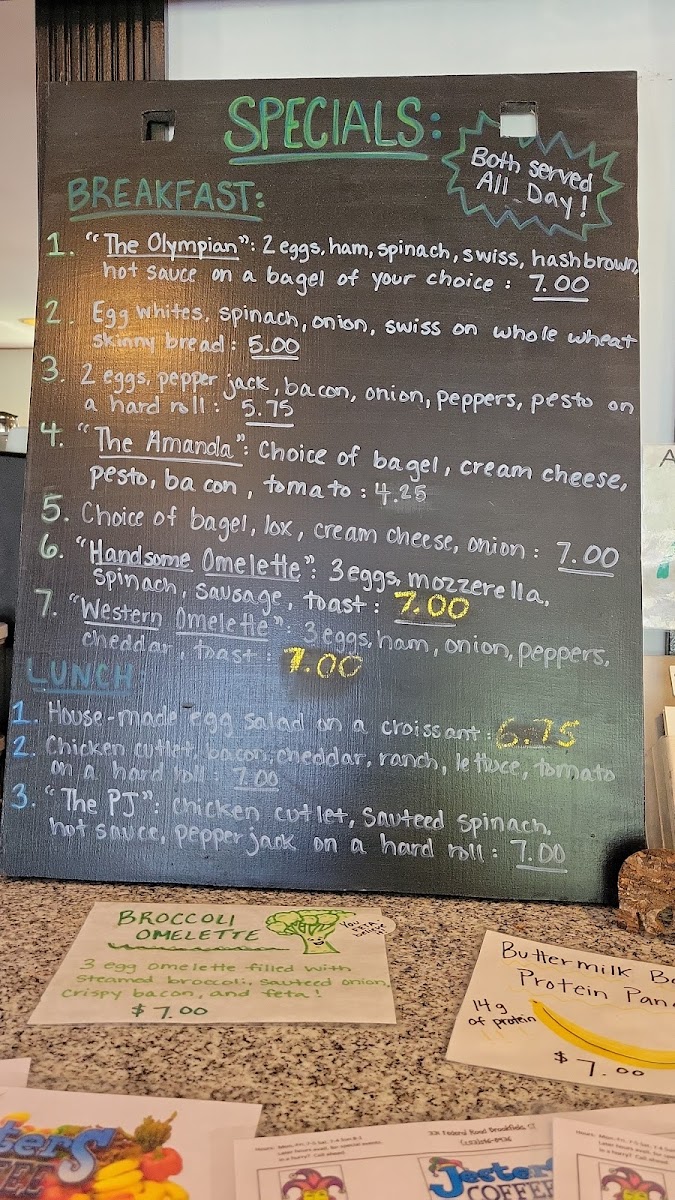 SPECIALS:
Both served
All Day!
BREAKFAST:
1. "The Olympian": 2 eggs, ham, spinach, swiss, hashbrown,
hot sauce on a bagel of your choice: 7.00
2. Egg whites, spinach, onion, swiss on whole wheat
skinny bread: 5.00
3. 2 eggs, pepper jack, bacon, onion, peppers, pesto on
a hard roll: 5.75
4. "The Amanda": Choice of bagel, cream cheese,
pesto, bacon, tomato: 4.25
5. Choice of bagel, lox, cream cheese, onion: 7.00
6. "Handsome Omelette": 3 eggs, mozzerella,
spinach, sausage, toast: 7.00
7. "Western Omelette": 3 eggs, ham, onion, peppers,
cheddar, toast: 7.00
LUNCH:
1. House-made egg salad on a croissant: 6.75
2. Chicken cutlet, bacon, cheddar, ranch, lettuce, tomato
on a hard roll: 7.00
3. "The PJ": chicken cutlet, Sauteed spinach,
hot sauce, pepper jack on a hard roll: 7.00
BROCCOLI
OMELETTE
3 egg omelette filled with
steamed broccoli, sauteed onion,
crispy bacon, and feta!
$7.00
Buttermilk B
Protein Pan
14g
of protein
$7.00
sters
FEE
Jester
COFFEE